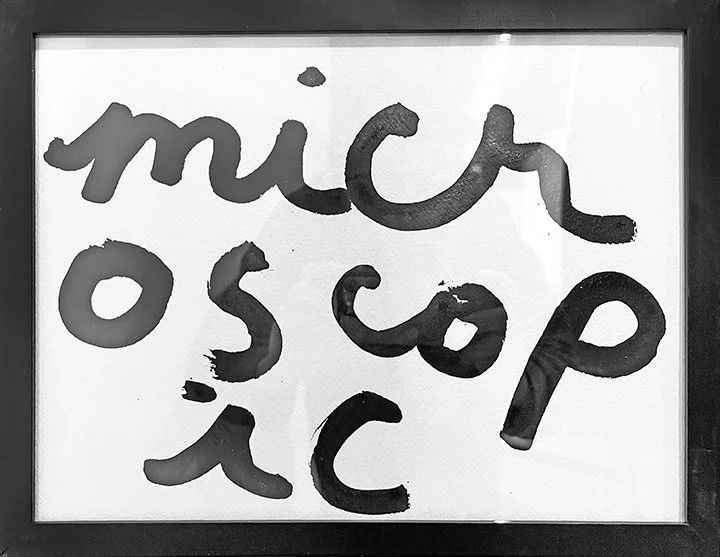 micr
oscop
ic